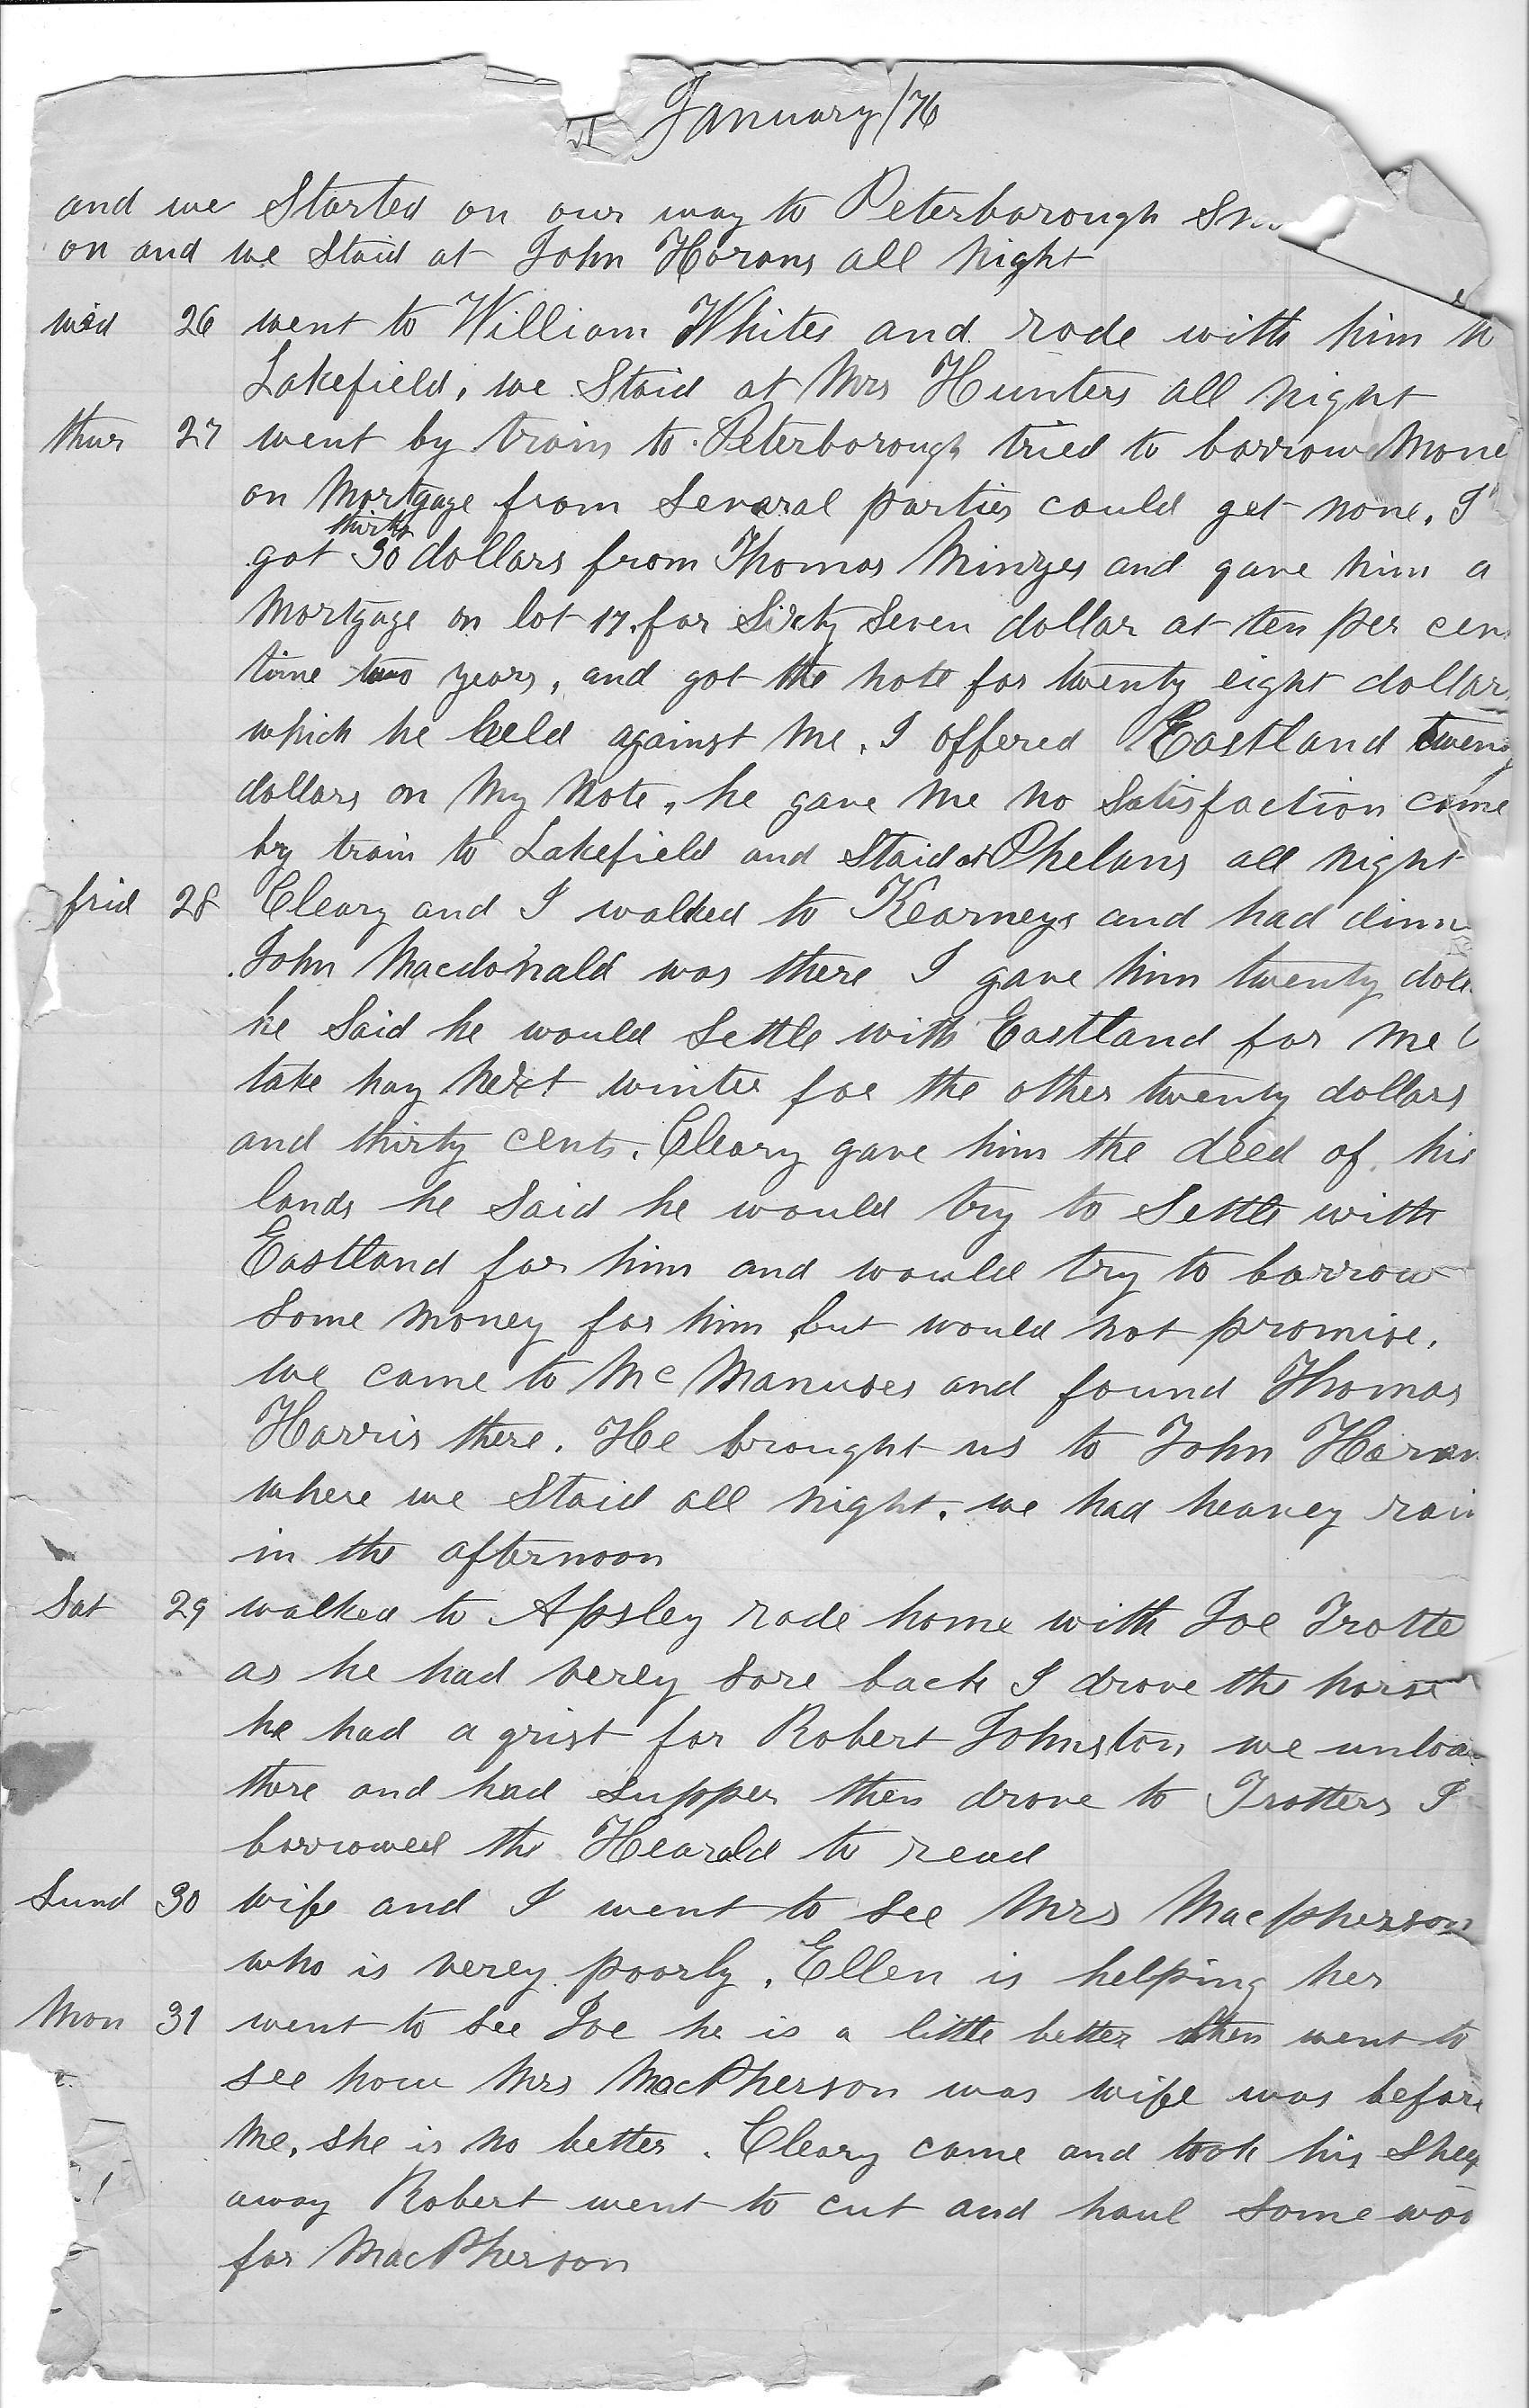 January/76
and we Started on our way to Peterborough
on and we Staid at John Horans all night
wed 26 went to William Whites and rode with him
Lakefield, we Staid at Mrs Hunters all night
thur 27 went by train to Peterborough tried to borrow Mone
on Mortgage from Several parties could get none, I
thirty
got 30 dollars from Thomas Minzes and gave him a
Mortgage on lot 17, for Sixty Seven dollar at ten per cen
time two years, and got the note for twenty eight dollars
which he held against Me, I offered Eastland twenty
dollars on My Note, he gave Me No Satisfaction came
by train to Lakefield and Staid at Phelans all night
frid 28 Cleary and I walked to Kearneys and had dinn
John Macdonald was there I gave him twenty doll
he Said he would Settle with Eastland for Me
take hay Next winter for the other twenty dollars
and thirty cents. Cleary gave him the deed of his
lands he Said he would try to Settle with
Eastland for him and would try to borrow
Some money for him but would not promise,
we came to McManuses and found Thomas
Harris there. He brought us to John Horan
where we Staid all night. we had heavey rain
in the afternoon
Sat 29 walked to Apsley rode home with Joe Trotte
as he had verey Sore back I drove the horse
he had a grist for Robert Johnston we unloa
there and had Supper then drove to Trotters I
borrowed the Hearald to read
Sund 30 wife and I went to See Mrs Macpherson
who is verey poorly, Ellen is helping her
Mon 31 went to See Joe he is a little better then went to
See how Mrs MacPherson was wife was before
Me, She is No better. Cleary came and took his Sheep
away Robert went to cut and haul Some woo
for MacPherson